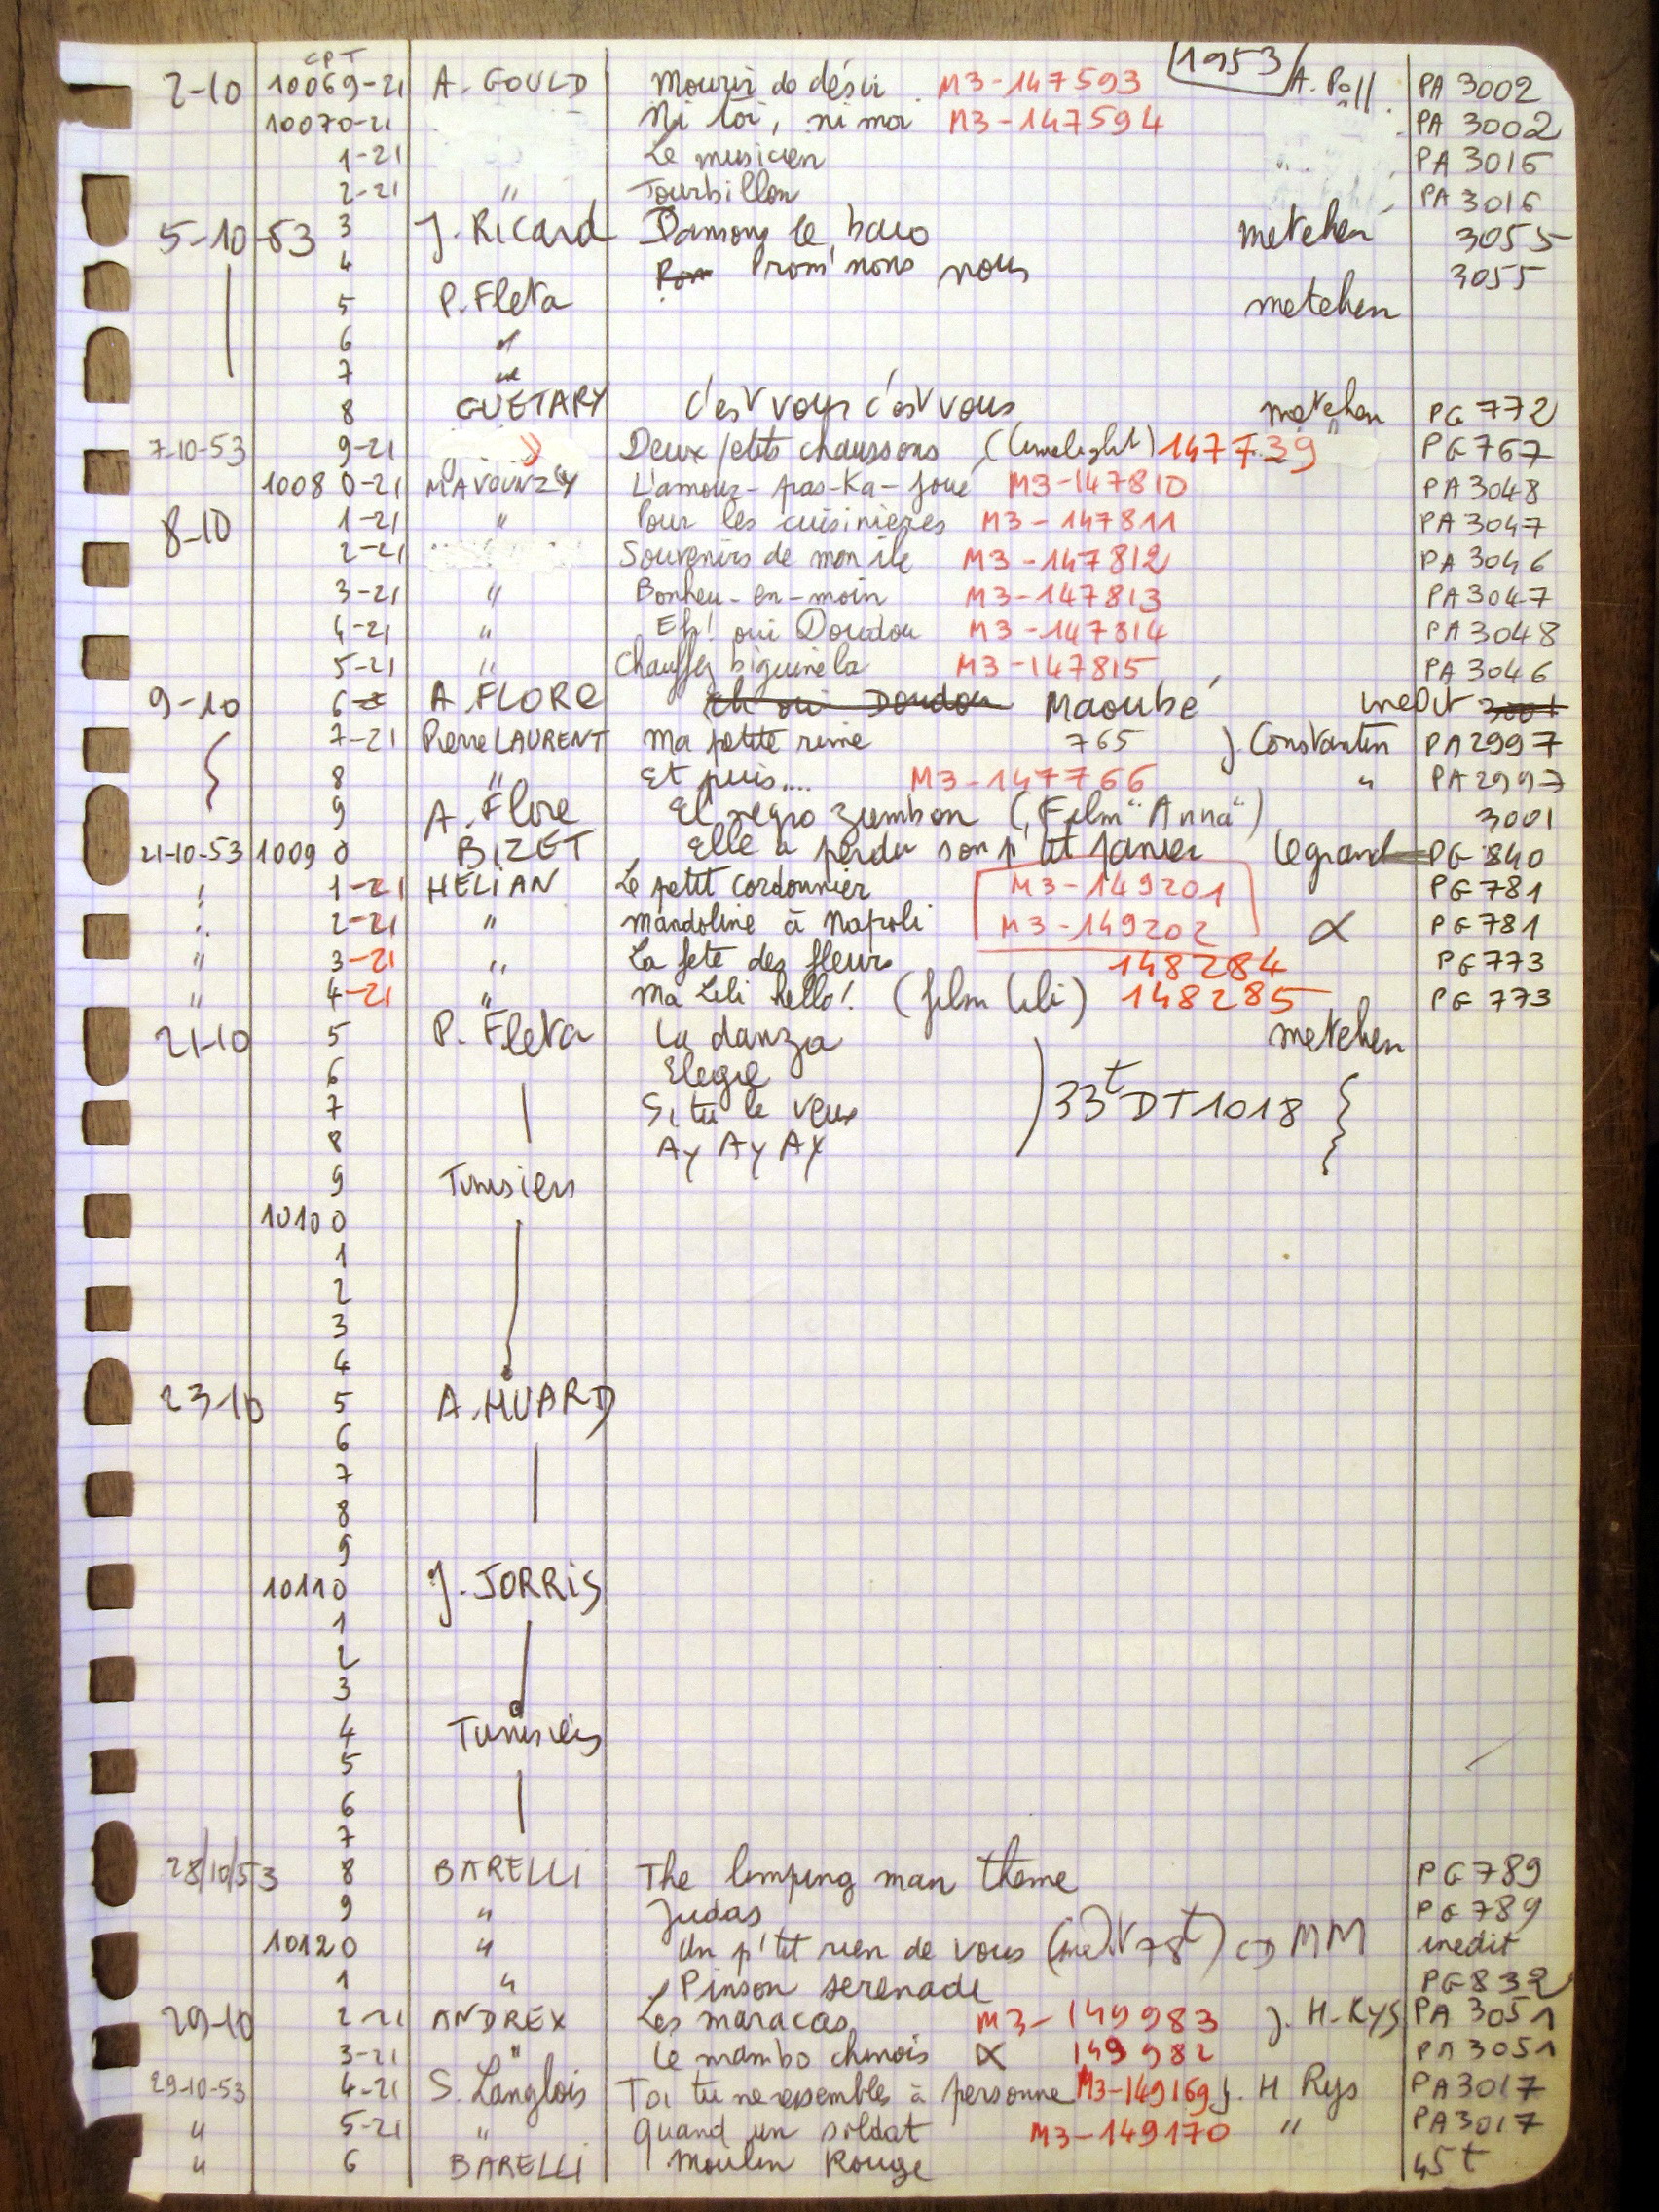 CPT 1953
2-10 10069-21 A. GOULD Mourir de désir M3-147593 A. Poll PA 3002
10070-21 Ni toi, ni moi M3-147594 PA 3002
1-21 Le musicien " PA 3016
2-21 " Tourbillon PA 3016
5-10-53 3 J. Ricard Dansons le baio metehen 3055
4 Prom'nons nous 3055
5 P. Fleta metehen
6 "
7 "
8 GUETARY c'est vous c'est vous metehen PG 772
7-10-53 9-21 " Deux petits chaussons (Limelight) 147739 PG 767
10080-21 MAVOUNZY L'amour-pas-Ka-joué M3-147810 PA 3048
8-10 1-21 " Pour les cuisinières M3-147811 PA 3047
2-21 Souvenirs de mon île M3-147812 PA 3046
3-21 " Bonheu-en-moin M3-147813 PA 3047
4-21 " Eh! oui Doudou M3-147814 PA 3048
5-21 " Chauffez biguine la M3-147815 PA 3046
9-10 6 A. FLORE Eh oui Doudou Maoubé inedit 3001
7-21 Pierre LAURENT Ma petite reine 765 J. Constantin PA 2997
8 " Et puis.... M3-147766 " PA 2997
9 A. Flore El negro zumbon (Film "Anna") 3001
21-10-53 10090 BIZET Elle a perdu son p'tit panier Legrand PG 840
1-21 HELIAN Le petit cordonnier M3-149201 PG 781
2-21 " Mandoline à Napoli M3-149202 PG 781
" 3-21 " La fete des fleurs 148284 PG 773
" 4-21 " Ma Lili hello! (film Lili) 148285 PG 773
21-10 5 P. Fleta La danza metehen
6 Elegie
7 Si tu le veux 33t DT1018
8 Ay Ay Ay
9 Tunisiens
10100
1
2
3
4
23-10 5 A. HUARD
6
7
8
9
10110 J. JORRIS
1
2
3
4 Tunisiens
5
6
7
28/10/53 8 BARELLI The limping man theme PG 789
9 " Judas PG 789
10120 " Un p'tit rien de vous (inedit 78t) MM inedit
1 " Pinson serenade PG 832
29-10 2-21 ANDREX Les maracas M3-149983 J. H-Kys PA 3051
3-21 " Le mambo chinois 149982 PA 3051
29-10-53 4-21 S. Langlois Toi tu ne ressembles à personne M3-149169 J. H Rys PA 3017
" 5-21 " Quand un soldat M3-149170 " PA 3017
" 6 BARELLI Moulin Rouge 45t